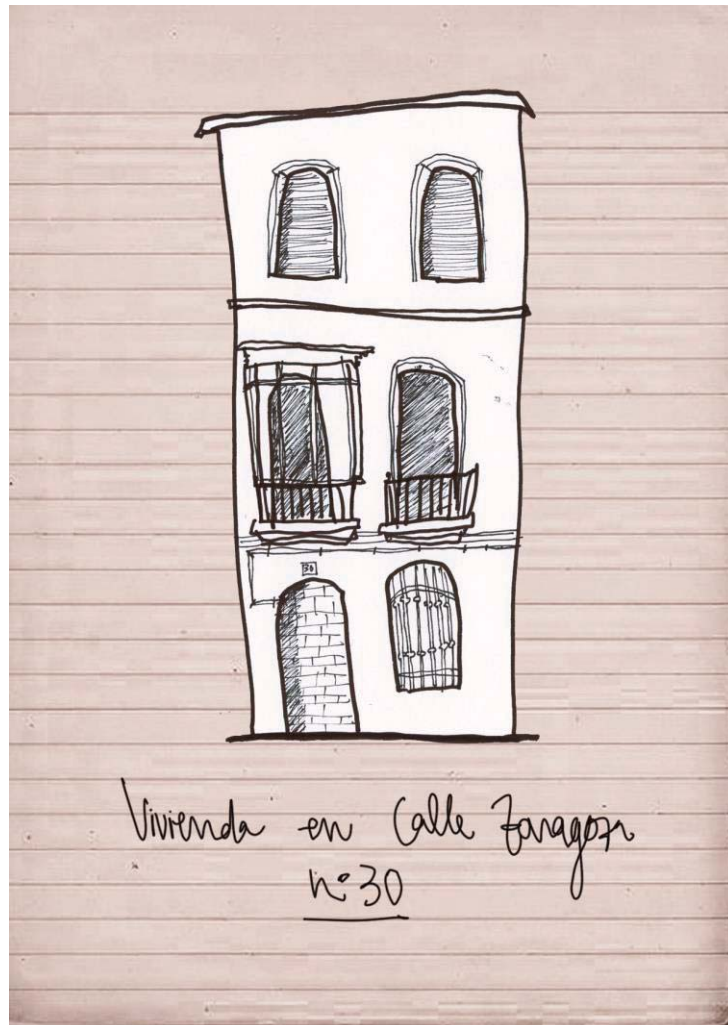 30
Vivienda en Calle Zaragoza
nº30